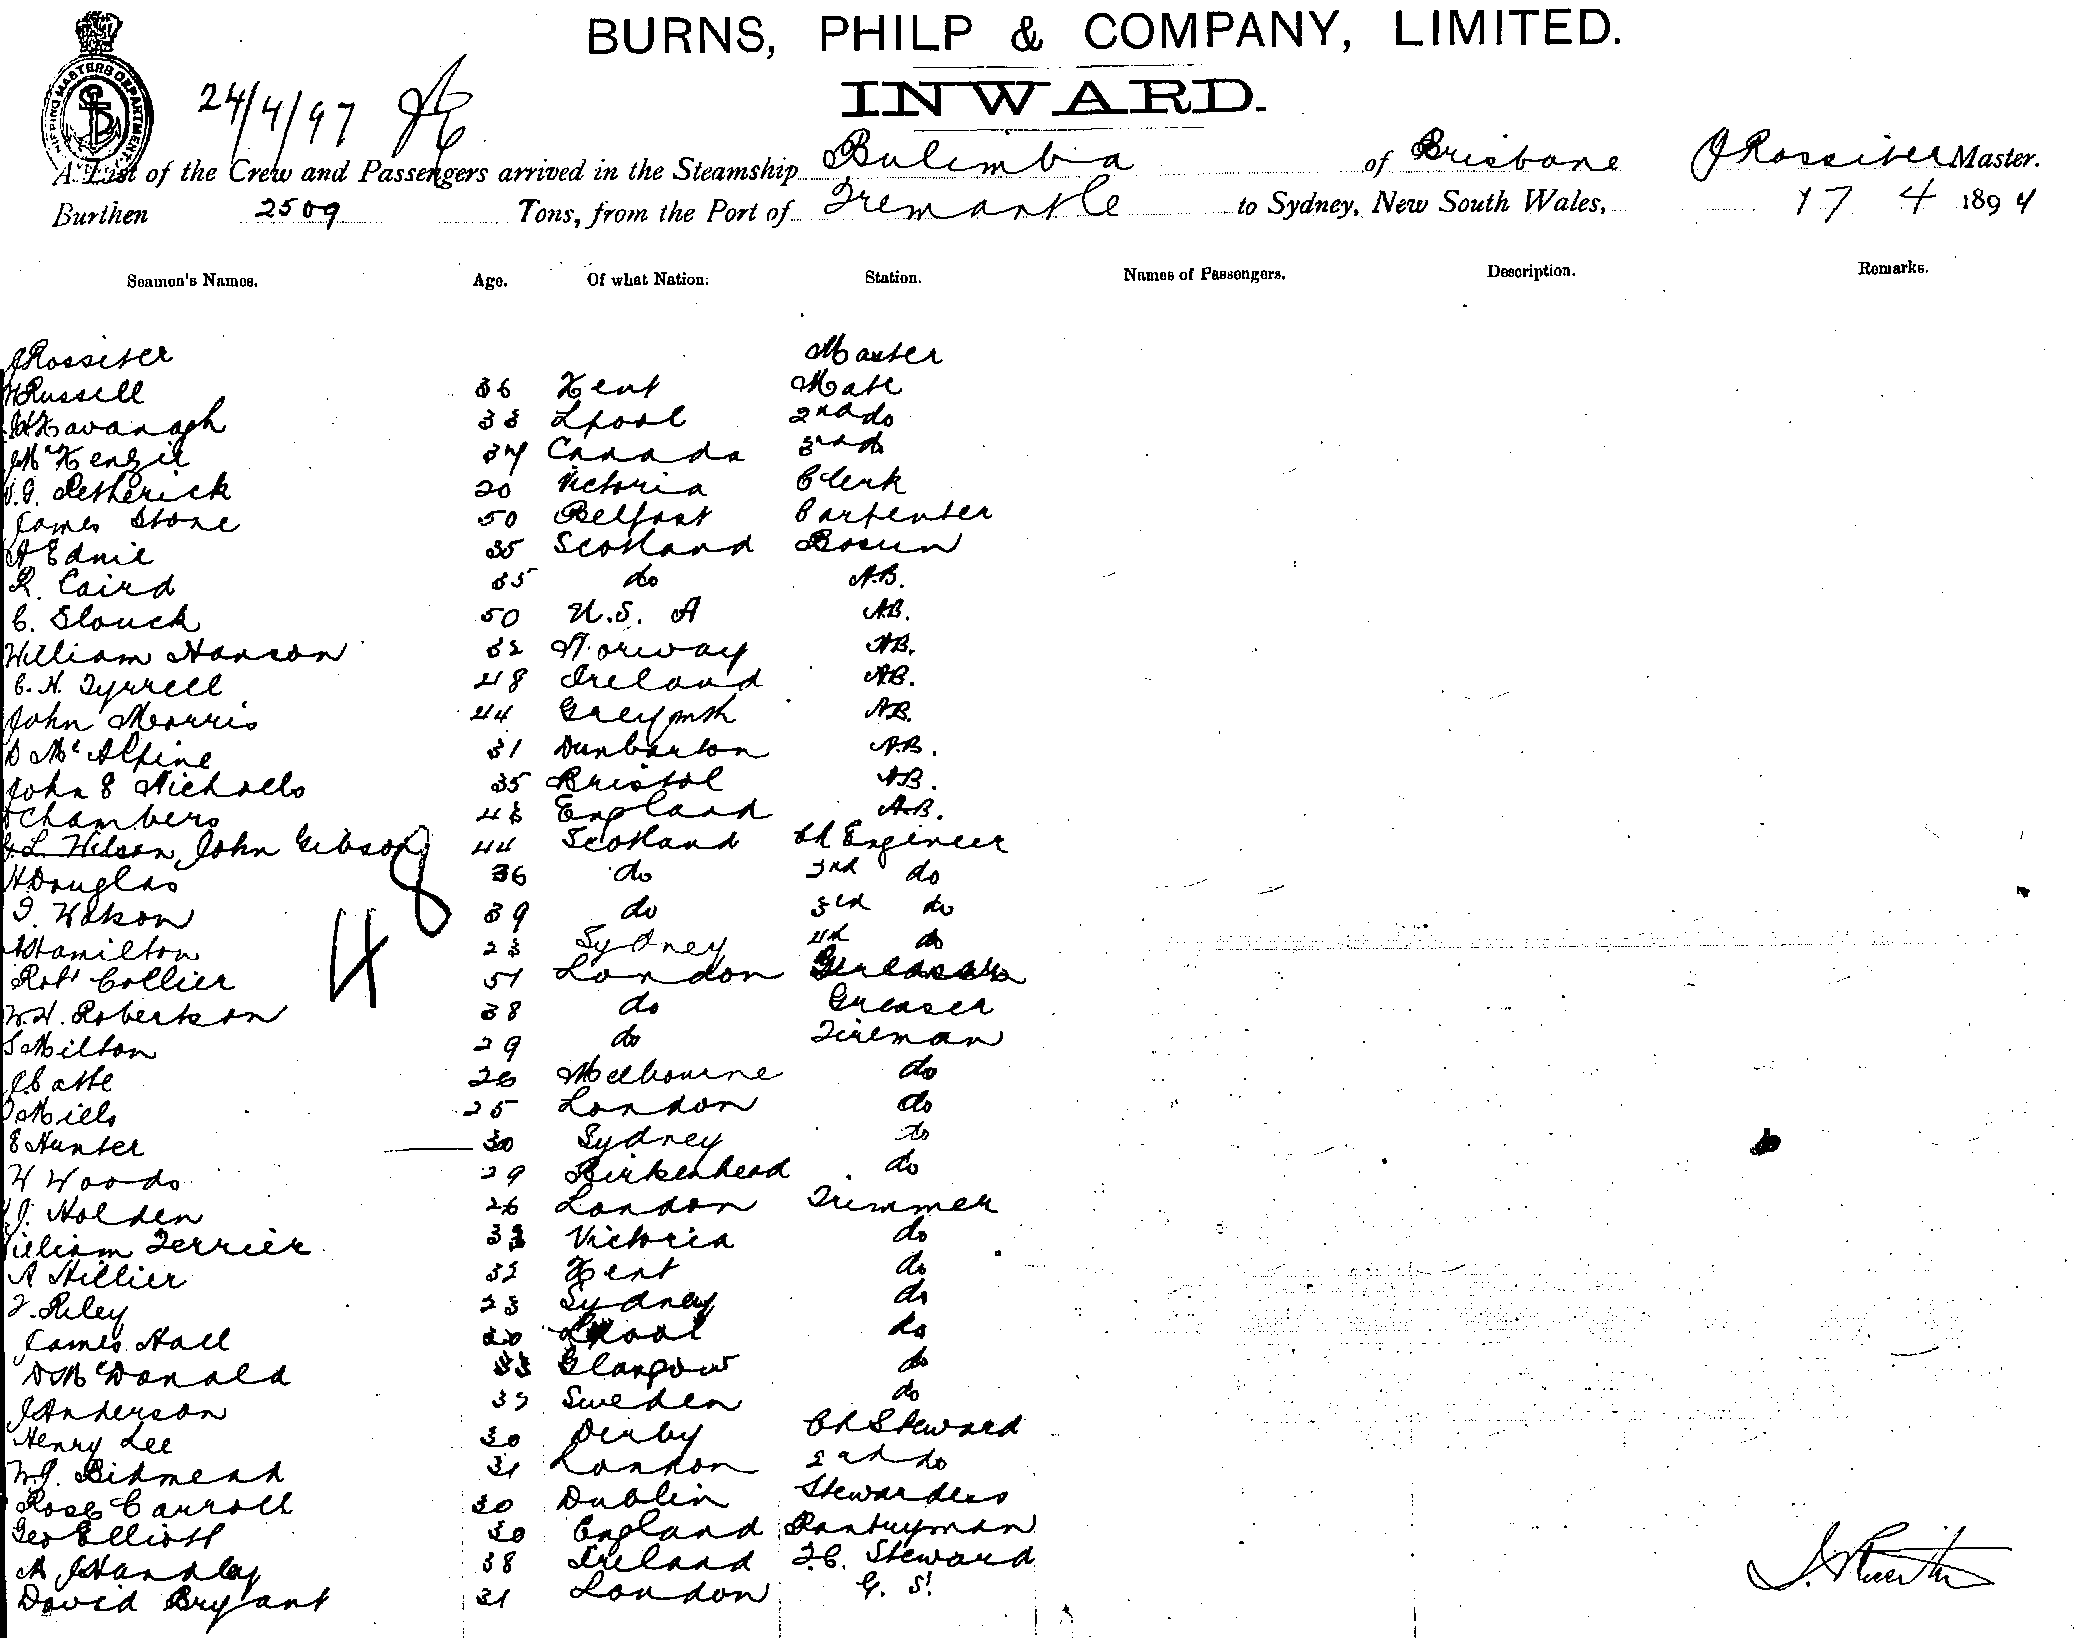 BURNS, PHILP & COMPANY, LIMITED.
INWARD.
SHIPPING MASTERS DEPARTMENT.
24/4/97
A List of the Crew and Passengers arrived in the Steamship Bulimba of Brisbane J Rossiter Master.
Burthen 2509 Tons, from the Port of Fremantle to Sydney, New South Wales, 17 4 1894
Seamen's Names. Age. Of what Nation. Station. Names of Passengers. Description. Remarks.
J Rossiter Master
Russell 36 Kent Mate
Kavanagh 33 Lpool 2nd do
J McKenzie 34 Canada 3rd do
Petherick 20 Victoria Clerk
James Stone 50 Belfast Carpenter
A Ednie 35 Scotland Bosun
R. Caird 35 do A.B.
C. Slouck 50 U.S. A AB.
William Hanson 32 Norway AB.
C. H. Tyrrell 48 Ireland AB.
John Morris 44 Greymth AB.
D McAlpine 31 Dunbarton A.B.
John E Nicholls 35 Bristol AB.
Chambers 43 England A.B.
L. Wilson, John Gibson 44 Scotland Ch Engineer
H Douglas 36 do 2nd do
48
T. Watson 39 do 3rd do
Hamilton 23 Sydney 4th do
Robt Collier 51 London Greaser
W. H. Robertson 38 do Greaser
S Milton 29 do Fireman
26 Melbourne do
Mills 25 London do
E Hunter 30 Sydney do
W Woods 29 Birkenhead do
J. Holden 26 London Trimmer
William Ferrier 33 Victoria do
A Hillier 32 Kent do
F. Riley 23 Sydney do
James Hall 20 Lpool do
D McDonald 33 Glasgow do
J Anderson 32 Sweden do
Henry Lee 30 Derby Ch Steward
W J. Bidmead 31 London 2nd do
Rose Carroll 30 Dublin Stewardess
Geo Elliott 30 England Pantryman
J Handley 38 Ireland F.C. Steward
David Bryant 31 London G. S.